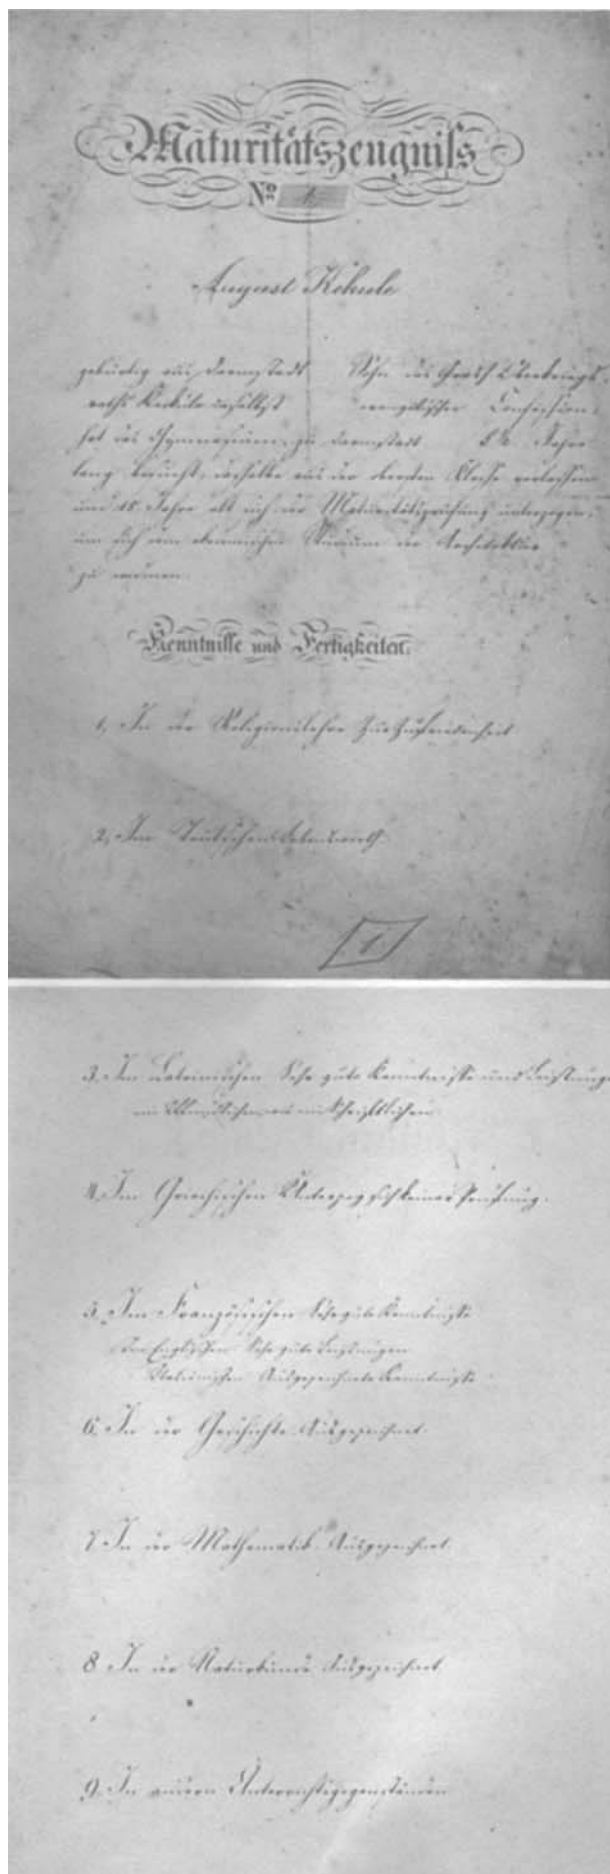 Maturitätszeugniß
No. 1
August Kekule
gebürtig aus Darmstadt Sohn des Großh. Oberkriegs
raths Kekule daselbst evangelischer Confession,
hat das Gymnasium zu Darmstadt 5½ Jahre
lang besucht, dasselbe aus der obersten Classe verlassen
und 18 Jahre alt sich der Maturitätsprüfung unterzogen,
um sich dem akademischen Studium der Architektur
zu widmen.
Kenntnisse und Fertigkeiten.
1, In der Religionslehre Zur Zufriedenheit
2, Im Teutschen
1
3. Im Lateinischen Sehr gute Kenntnisse und Leistungen
im Mündlichen wie im Schriftlichen
4. Im Griechischen Unterzog sich keiner Prüfung.
5. Im Französischen Sehr gute Kenntnisse
Im Englischen Sehr gute Leistungen
Italienischen Ausgezeichnete Kenntnisse
6. In der Geschichte Ausgezeichnet.
7. In der Mathematik Ausgezeichnet.
8. In der Naturkunde Ausgezeichnet.
9. In andern Unterrichtsgegenständen